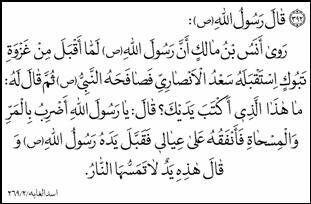 ۳۹۲ قَالَ رَسُولُ اللهِ (ص) :
رَوىٰ أَنَسُ بْنُ مٰالِكٍ أَنَّ رَسُولَ اللهِ (ص) لَمّٰا أَقْبَلَ مِنْ غَزْوَةِ
تَبُوكٍ اسْتَقْبَلَهُ سَعْدُ الْأَنصٰارِيّ فَصٰافَحَهُ النَّبِيُّ (ص) ثُمَّ قٰالَ لَهُ :
مٰا هٰذَا الَّذِي أَكْتَبَ يَدَيْكَ؟ قٰالَ : يٰا رَسُولَ اللهِ أَضْرِبُ بِالْمَرِّ
وَالْمِسْحٰاةِ فَأُنْفِقُهُ عَلىٰ عِيٰالِي فَقَبَّلَ يَدَهُ رَسُولُ اللهِ (ص) وَ
قٰالَ هٰذِهِ يَدٌ لٰا تَمَسُّهَا النّٰارُ .
اسد الغابه/۲/۲۶۹